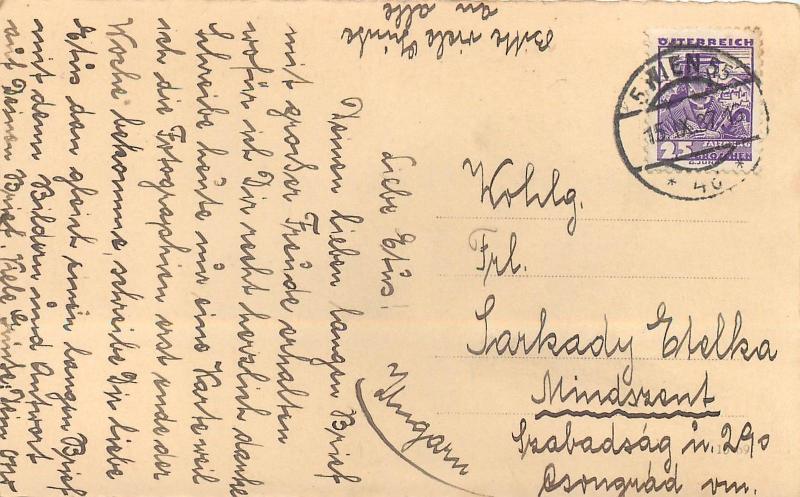 Liebe Etus!
Deinen lieben langen Brief
mit großer Freude erhalten
wofür ich Dir recht herzlich danke
Schreibe heute nur eine Karte weil
ich die Fotographien erst ende der
Woche bekomme, schreibe Dir liebe
Etus dan gleich einen langen Brief
mit denn Bildern und Antwort
auf Deinen Brief. Viele Grüße: Dein
Bitte viele Grüße
an alle
ÖSTERREICH
25 GROSCHEN
5 WIEN 55
* 4c *
Wohlg.
Frl.
Sarkady Etelka
Mindszent
Szabadság u. 290
Csongrád vm.
Ungarn